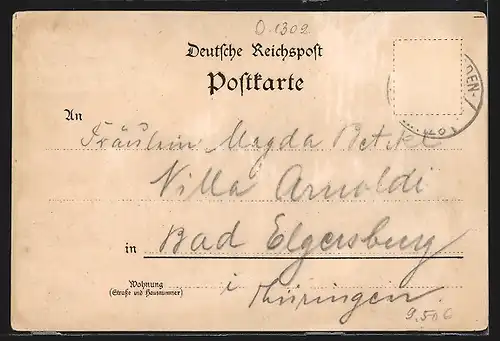 D.1302
Deutsche Reichspost
Postkarte
DEN-
An
Fräulein Magda
Villa Arnoldi
in Bad Elgersburg
Wohnung
(Straße und Hausnummer)
i Thüringen.
9.506